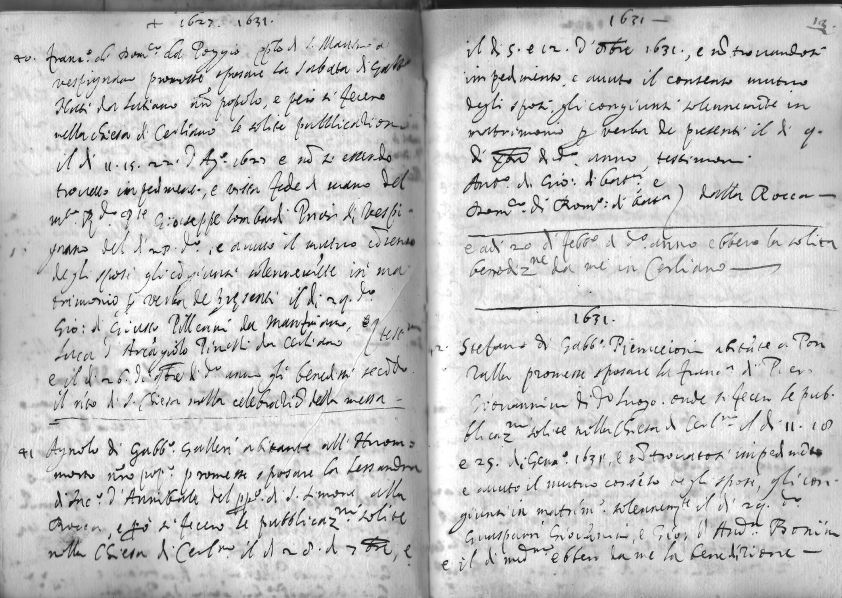 + 1627. 1631.
40. Franc.º di Dom.º del Poggio di S. Martino a
promesse sposare la Sabata di Gabb.º
da Lutiano nro popolo, e però si fecero
nella chiesa di Cerliano le solite pubblicationi
il dì 11. 15. 22. d' Ag.º 1627 e nõ si essendo
trovato impedimento, e vista fede di mano del
Giuseppe Lombardi Prior di Vespi-
gnano del dì 28. d.º, e avuto il mutuo cõsenso
degli sposi gli cõgiunsi solennemẽte in ma
trimonio p verba de presenti il dì 29. d.º
Gio: di Giusto da, e
Luca d' Arcãgiolo Pinelli da Cerliano test
e il dì 26. di d.º anno gli benedissi secõdo
il rito di S. Chiesa nella celebratiõ della messa
41 Agnolo di Gabb.º Galleri abitante all'
morto nro pop.º promesse sposare la Lessandra
di d'Annibale del pp.º di S. Simone alla
Rocca, e p̃ò si fecero le pubblicaz.ni solite
nella Chiesa di Cerl.no il dì 28. d 7bre, e
1631 —
13.
il dì 5. e 12. d' 8bre 1631., e nõ trovandosi
impedimento, e avuto il consenso mutuo
degli sposi, gli congiunsi solennemẽte in
matrimonio p verba de presenti il dì 9.
di di d.º anno testimoni
Ant.º di Gio: di Bat.ª e
Dom.º di Rom.º: di Bata dalla Rocca —
e adì 20 di febb.º d d.º anno ebbero la solita
bened.ne da me in Cerliano —
1631.
Stefano di Gabb.º Pieruccioni abitãte a Pon
promesse sposare la Franc.ª di
Giovannini di d.º luogo. onde si fecero le pub-
blicaz.ni solite nella Chiesa di Cerl.no il dì 11. 18
e 25. di Genn.º 1631, e nõ trovatosi impedimẽto
e avuto il mutuo consẽso degli sposi, gli con-
giunsi in matrim.º solennem.te il dì 29. d.º
Guasparri Giovannini, e Gio: d' And.ª Bonini
e il dì med.mo ebbero da me la benedizione —